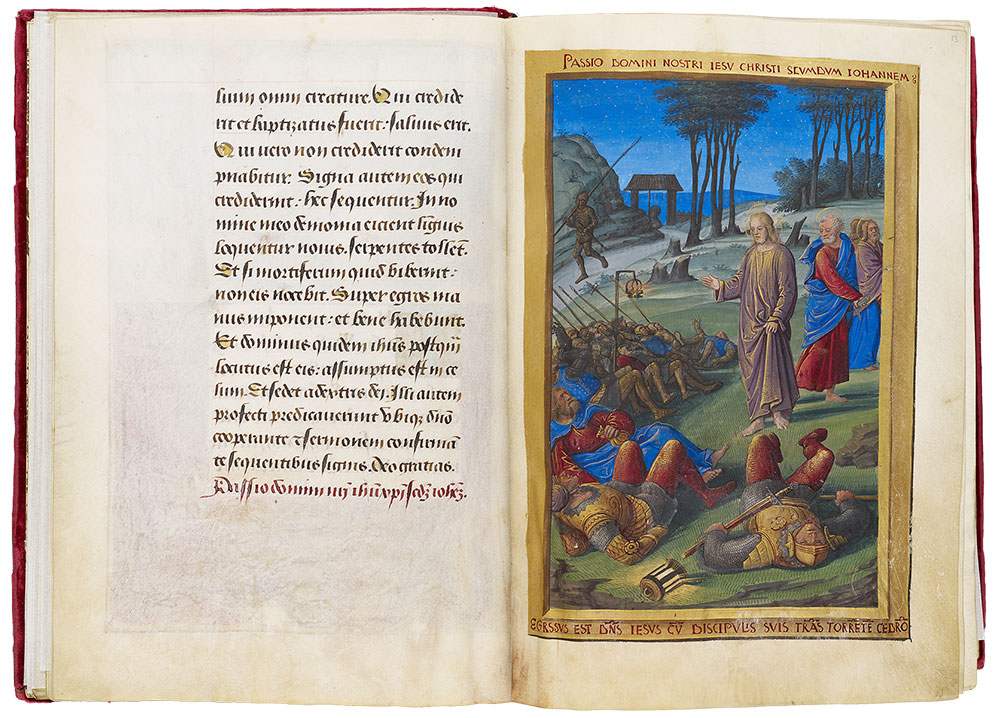 sium omni creature. Qui credide
rit et baptizatus fuerit: salvus erit.
Qui vero non crediderit condem
pnabitur. Signa autem eos qui
crediderint: hec sequentur. In no
mine meo demonia eicient linguis
loquentur novis. serpentes tollēt.
Et si mortiferum quid biberint:
non eis nocebit. Super egros ma
nus imponent: et bene habebunt.
Et dominus quidem ihūs postq̄
locutus est eis: assumptus est in ce
lum. Et sedet a dextris dei. Illi autem
profecti predicaverunt ubiq; dn̄o
cooperante et sermonem confirmā
te sequentibus signis. Deo gratias.
Passio domini nr̄i ihū xp̄i scdʒ ioheʒ.
13
PASSIO DOMINI NOSTRI IESU CHRISTI SECUMDUM IOHANNEM
EGRSSUS EST DN̄S IESUS CŪ DISCIPULIS SUIS TRĀS TORRĒTĒ CEDRŌ